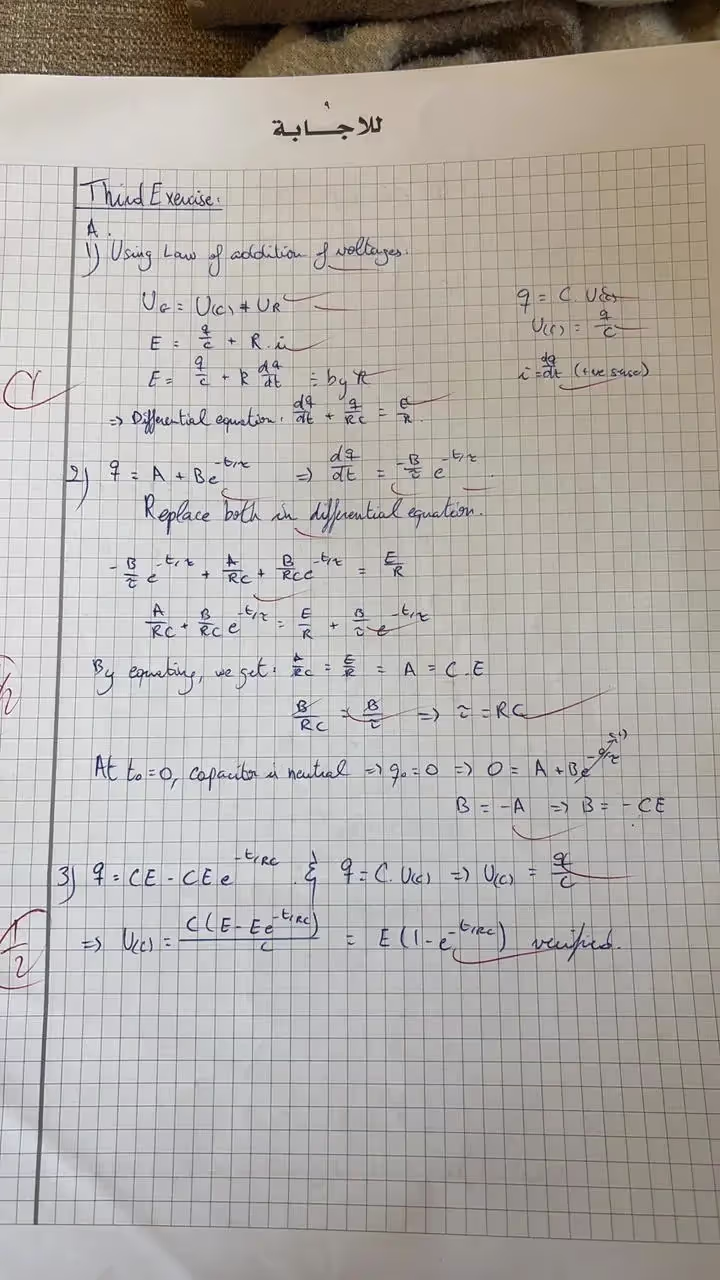 للاجابة
Third Exercise:
A.
1) Using Law of addition of voltages.
UG = U(C) + UR
q = C. U(C)
E = q/c + R.i
U(C) = q/c
E = q/c + R dq/dt ÷ by R
i = dq/dt (+ve sense)
=> Differential equation: dq/dt + q/RC = E/R.
2) q = A + Be^-t/τ => dq/dt = -B/τ e^-t/τ
Replace both in differential equation.
-B/τ e^-t/τ + A/RC + B/RC e^-t/τ = E/R
A/RC + B/RC e^-t/τ = E/R + B/τ e^-t/τ
By equating, we get: A/RC = E/R = A = C.E
B/RC = B/τ => τ = RC
At t₀=0, capacitor is neutral => q₀=0 => 0 = A + Be^-0/τ
B = -A => B = -CE
3) q = CE - CE e^-t/RC & q = C.U(C) => U(C) = q/c
1/2
=> U(C) = C(E - Ee^-t/RC)/C = E(1-e^-t/RC) verified.